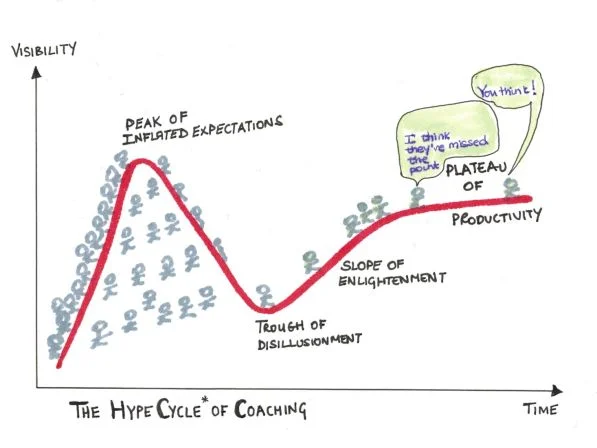 VISIBILITY
PEAK OF
INFLATED EXPECTATIONS
You think!
I think
they've missed
the
point
PLATEAU
OF
PRODUCTIVITY
SLOPE OF
ENLIGHTENMENT
TROUGH OF
DISILLUSIONMENT
THE HYPE CYCLE* OF COACHING
TIME